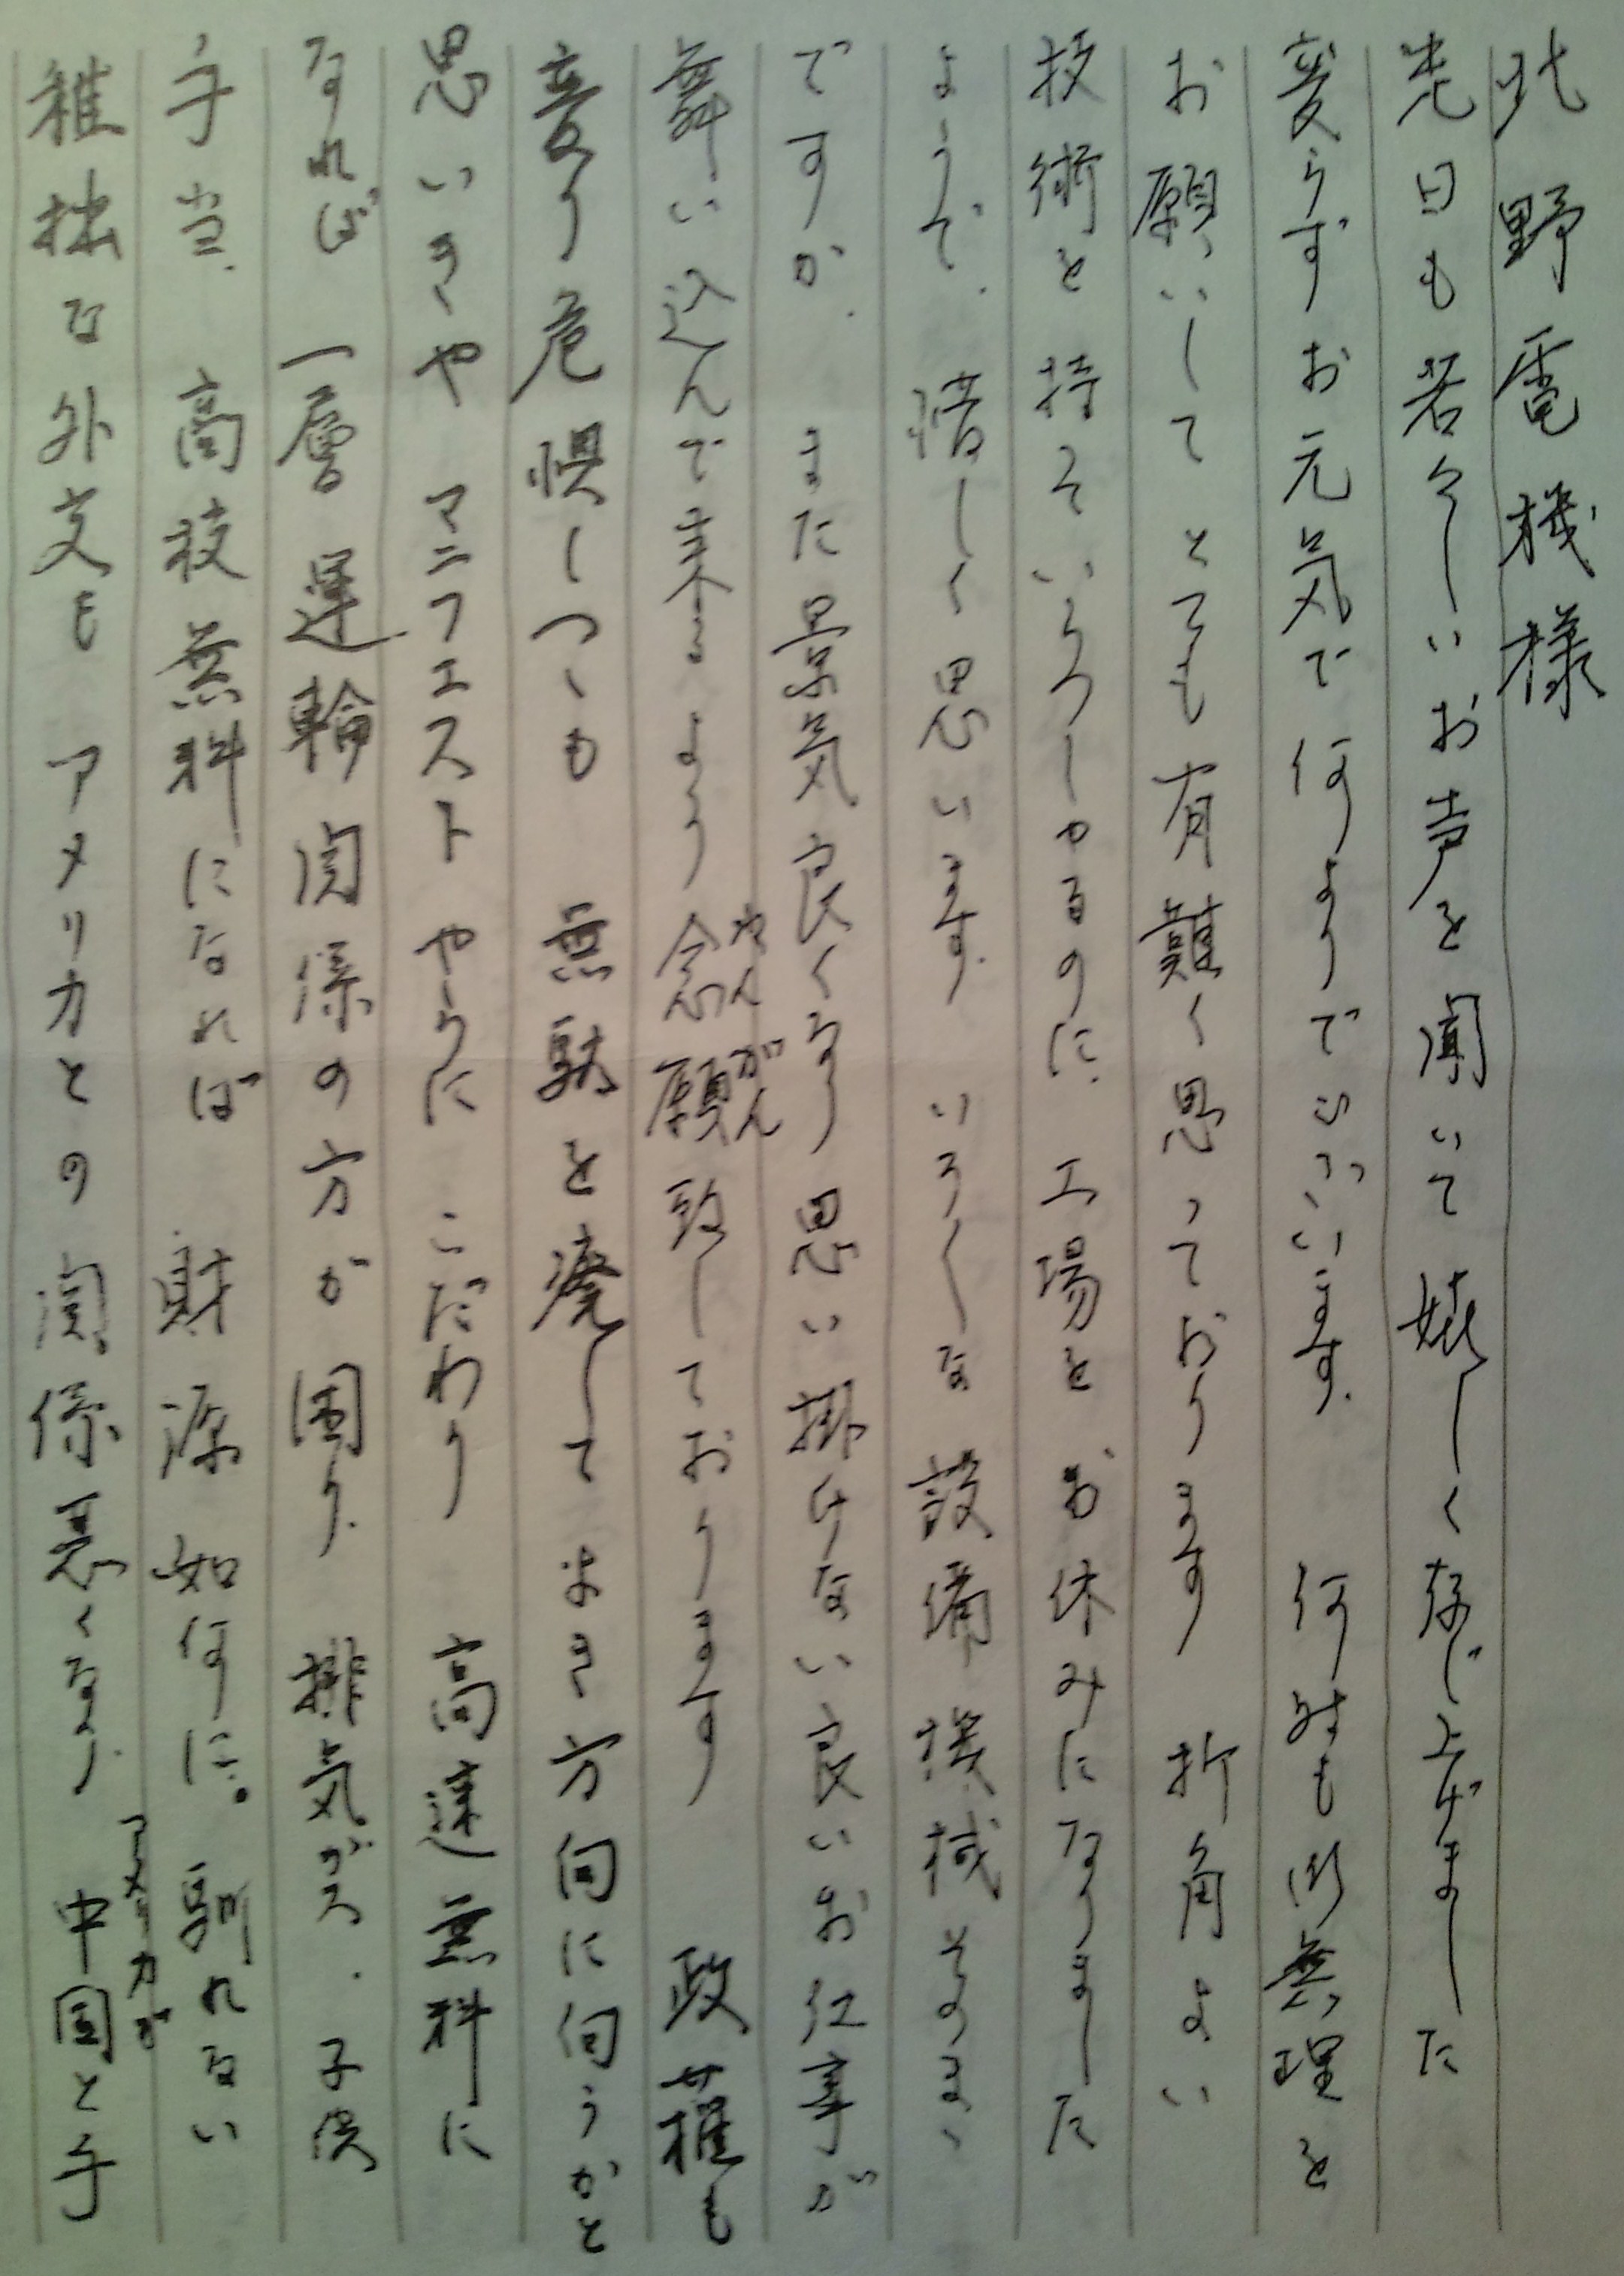 北野電機様
先日も若々しいお声を聞いて嬉しく存じ上げました
変らずお元気で何よりでございます。 何時も御無理を
お願いして とても有難く思っております 折角よい
技術を持っていらっしゃるのに、工場をお休みになりました
ようで、惜しく思います。 いろ〱な設備機械そのまゝ
ですが、 また景気良くなり思い掛けない良いお仕事が
舞い込んで来るよう念願致しております 政権も
ねんがん
変り危惧しつゝも 無駄を廃してよき方向に向うかと
思いきや マニフェストやらに こだわり 高速無料に
なれば 一層運輸関係の方が困り、 排気ガス、子供
手当、高校無料になれば 財源如何に。馴れない
稚拙な外交も アメリカとの関係悪くなり、 中国と手
アメリカが